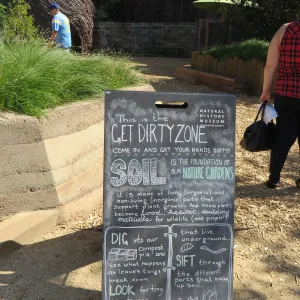 This is the
NATURAL
HISTORY MUSEUM
GET DIRTY ZONE
COME IN AND GET YOUR HANDS DIRTY!
SOIL IS THE FOUNDATION
OF OUR
NATURE GARDENS
It is made of living (organic) and
non-living (inorganic) parts that
support plant growth. And those plants
become food, habitat, building
materials for wildlife (and people)
DIG into our
compost
pile and
see what happens
as leaves, twigs
break down
LOOK for tiny
that live
underground
SIFT through
the different
parts that
make up
soil